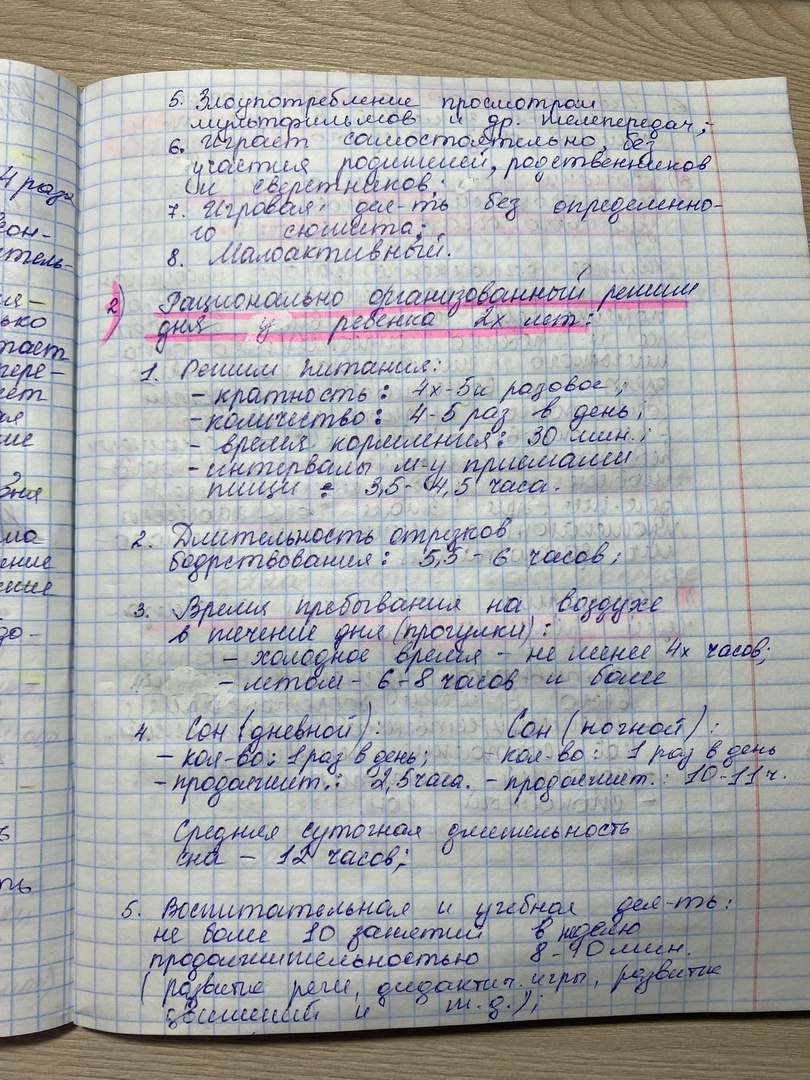 5. Злоупотребление просмотром
мультфильмов и др. телепередач;
6. Играет самостоятельно, без
участия родителей, родственников
и сверстников;
7. Игровая дея-ть без определенно-
го сюжета;
8. Малоактивный.
2) Рационально организованный режим
дня у ребенка 2х лет:
1. Режим питания:
- кратность: 4х-5и разовое;
- количество: 4-5 раз в день;
- время кормления: 30 мин.;
- интервалы м-у приемами
пищи: 3,5- 4,5 часа.
2. Длительность отрезков
бодрствования: 5,5 - 6 часов;
3. Время пребывания на воздухе
в течение дня (прогулки):
- холодное время - не менее 4х часов;
- летом - 6-8 часов и более
4. Сон (дневной): Сон (ночной):
- кол-во: 1 раз в день; кол-во: 1 раз в день
- продолжит.: 2,5 часа. - продолжит.: 10-11 ч.
Средняя суточная длительность
сна - 12 часов;
5. Воспитательная и учебная дея-ть:
не более 10 занятий в неделю
продолжительностью 8-10 мин.
(развитие речи, дидактич. игры, развитие
движений и т.д.);
4 раза
кон-
итель-
ько
пере-
ние
ение
до-